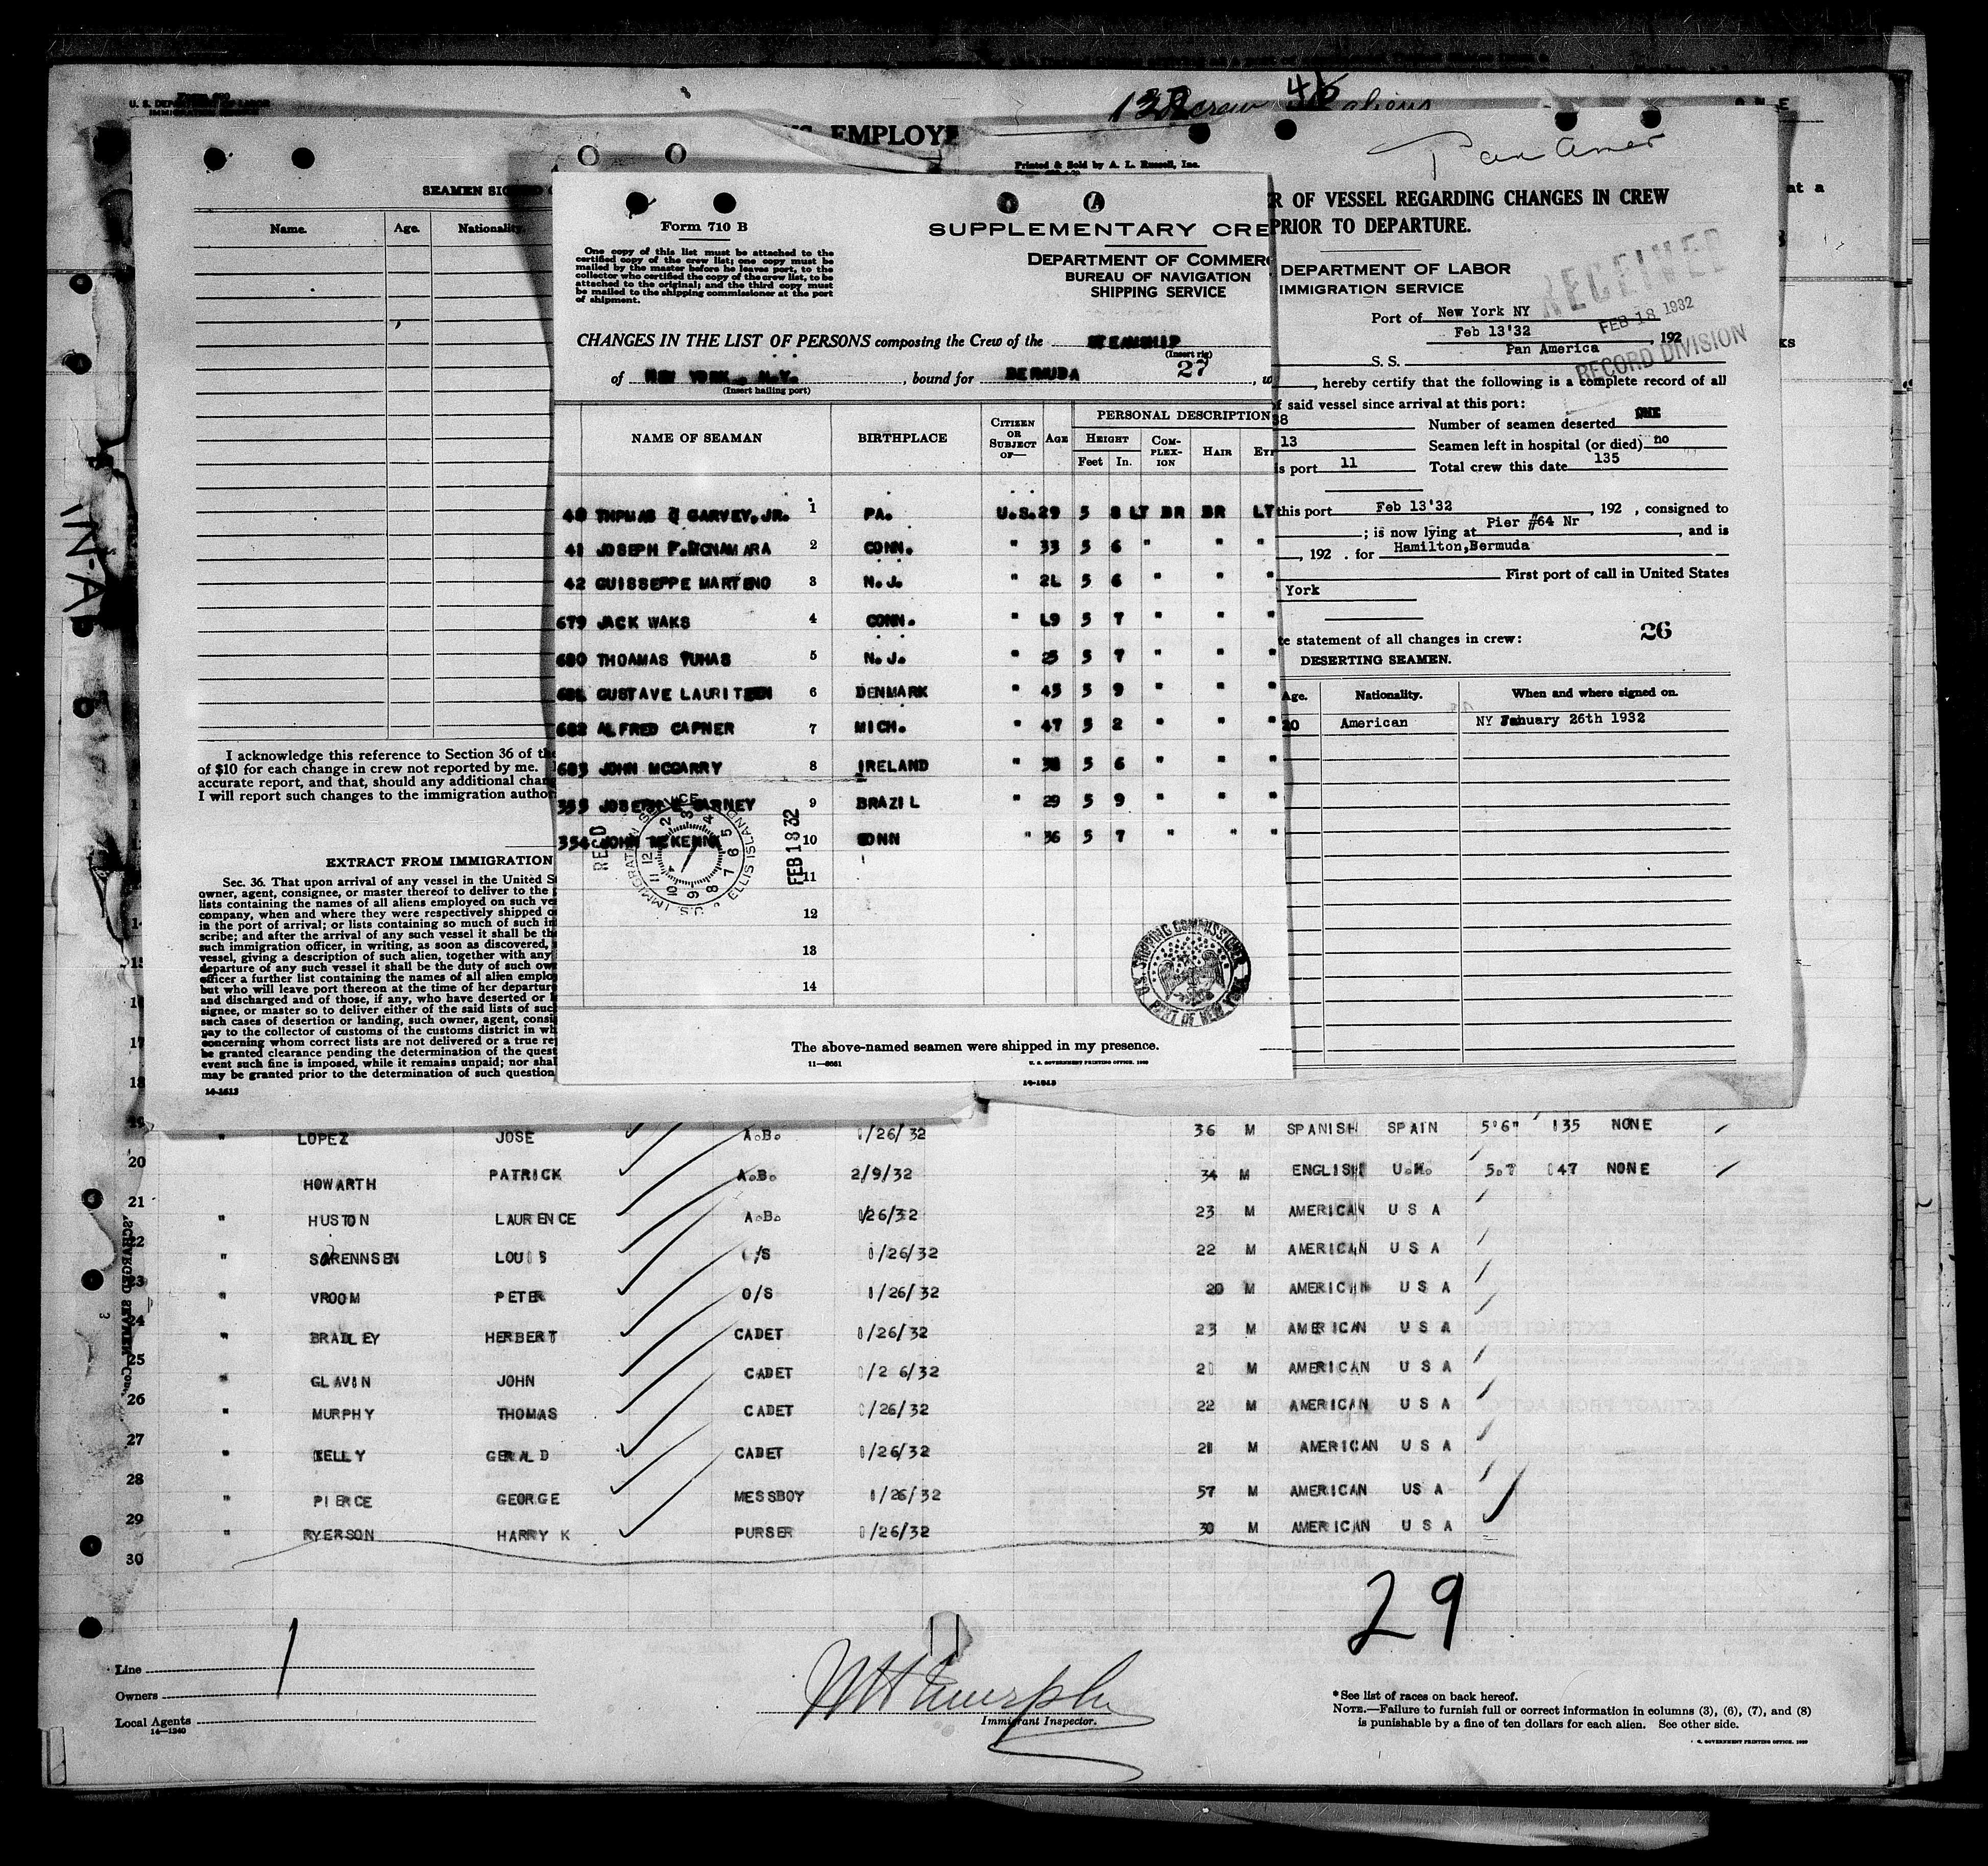 U. S. DEPARTMENT OF LABOR
EMPLOYE
Printed & Sold by A. L. Russell, Inc.
Pan Amer
SEAMEN
Name. Age. Nationality.
I acknowledge this reference to Section 36 of the
of $10 for each change in crew not reported by me.
accurate report, and that, should any additional chan
I will report such changes to the immigration author
EXTRACT FROM IMMIGRATION
Sec. 36. That upon arrival of any vessel in the United S
owner, agent, consignee, or master thereof to deliver to the
lists containing the names of all aliens employed on such ve
company, when and where they were respectively shipped o
in the port of arrival; or lists containing so much of such in
scribe; and after the arrival of any such vessel it shall be th
such immigration officer, in writing, as soon as discovered,
vessel, giving a description of such alien, together with any
departure of any such vessel it shall be the duty of such ow
officer a further list containing the names of all alien emplo
but who will leave port thereon at the time of her departure
and discharged and of those, if any, who have deserted or l
signee, or master so to deliver either of the said lists of suc
such cases of desertion or landing, such owner, agent, consi
pay to the collector of customs of the customs district in wh
concerning whom correct lists are not delivered or a true re
be granted clearance pending the determination of the quest
event such fine is imposed, while it remains unpaid; nor shal
may be granted prior to the determination of such question
14-1513
Form 710 B
One copy of this list must be attached to the
certified copy of the crew list; one copy must be
mailed by the master before he leaves port, to the
collector who certified the copy of the crew list, to be
attached to the original; and the third copy must
be mailed to the shipping commissioner at the port
of shipment.
SUPPLEMENTARY CRE
DEPARTMENT OF COMMERC
BUREAU OF NAVIGATION
SHIPPING SERVICE
CHANGES IN THE LIST OF PERSONS composing the Crew of the STEAMSHIP
(Insert rig)
of NEW YORK, N.Y. , bound for BERMUDA 27
(Insert hailing port)
NAME OF SEAMAN BIRTHPLACE CITIZEN OR SUBJECT OF— AGE PERSONAL DESCRIPTION
HEIGHT COMPLEXION HAIR
Feet In.
40 THPMAS GARVEY, JR. 1 PA. U.S. 29 5 8 LT BR BR LT
41 JOSEPH F. MCNAMARA 2 CONN. " 33 5 6 " " "
42 GUISSEPPE MARTENO 3 N.J. " 2L 5 6 " " "
679 JACK WAKS 4 CONN. " L9 5 7 " " "
680 THOAMAS YUHAS 5 N.J. " 25 5 7 " " "
GUSTAVE LAURITZEN 6 DENMARK " 45 5 9 " " "
682 ALFRED CAPNER 7 MICH. " 47 5 2 " " "
683 JOHN MCGARRY 8 IRELAND " 38 5 6 " " "
9 BRAZIL " 29 5 9 " " "
354 JOHN MCKENNA 10 CONN " 36 5 7 " " "
11
12
13
14
REC'D
U.S. IMMIGRATION SERVICE ELLIS ISLAND
FEB 18 32
U.S. SHIPPING COMMISSIONER
PORT OF NEW YORK
The above-named seamen were shipped in my presence.
U. S. GOVERNMENT PRINTING OFFICE
R OF VESSEL REGARDING CHANGES IN CREW
PRIOR TO DEPARTURE.
DEPARTMENT OF LABOR
IMMIGRATION SERVICE
RECEIVED
FEB 18 1932
RECORD DIVISION
Port of New York NY
Feb 13'32 , 192
S. S. Pan America
, hereby certify that the following is a complete record of all
f said vessel since arrival at this port:
38 Number of seamen deserted ONE
13 Seamen left in hospital (or died) no
is port 11 Total crew this date 135
this port Feb 13'32 , 192 , consigned to
; is now lying at Pier #64 Nr , and is
, 192 . for Hamilton, Bermuda
First port of call in United States
York
te statement of all changes in crew: 26
DESERTING SEAMEN.
Age. Nationality. When and where signed on.
20 American NY January 26th 1932
14-1513
19 " LOPEZ JOSE A.B. 1/26/32 36 M SPANISH SPAIN 5'6" 135 NONE
20 HOWARTH PATRICK A.B. 2/9/32 34 M ENGLISH U.K. 5.7 147 NONE
21 " HUSTON LAURENCE A.B. 1/26/32 23 M AMERICAN U S A
22 " SORENNSEN LOUIS O/S 1/26/32 22 M AMERICAN U S A
23 " VROOM PETER O/S 1/26/32 20 M AMERICAN U S A
24 " BRADLEY HERBERT CADET 1/26/32 23 M AMERICAN U S A
25 " GLAVIN JOHN CADET 1/26/32 21 M AMERICAN U S A
26 " MURPHY THOMAS CADET 1/26/32 22 M AMERICAN U S A
27 " KELLY GERALD CADET 1/26/32 21 M AMERICAN U S A
28 " PIERCE GEORGE MESSBOY 1/26/32 57 M AMERICAN US A
29 " RYERSON HARRY K PURSER 1/26/32 30 M AMERICAN U S A
30
29
Line
Owners
Local Agents
14—1240
Immigrant Inspector.
*See list of races on back hereof.
NOTE.—Failure to furnish full or correct information in columns (3), (6), (7), and (8)
is punishable by a fine of ten dollars for each alien. See other side.